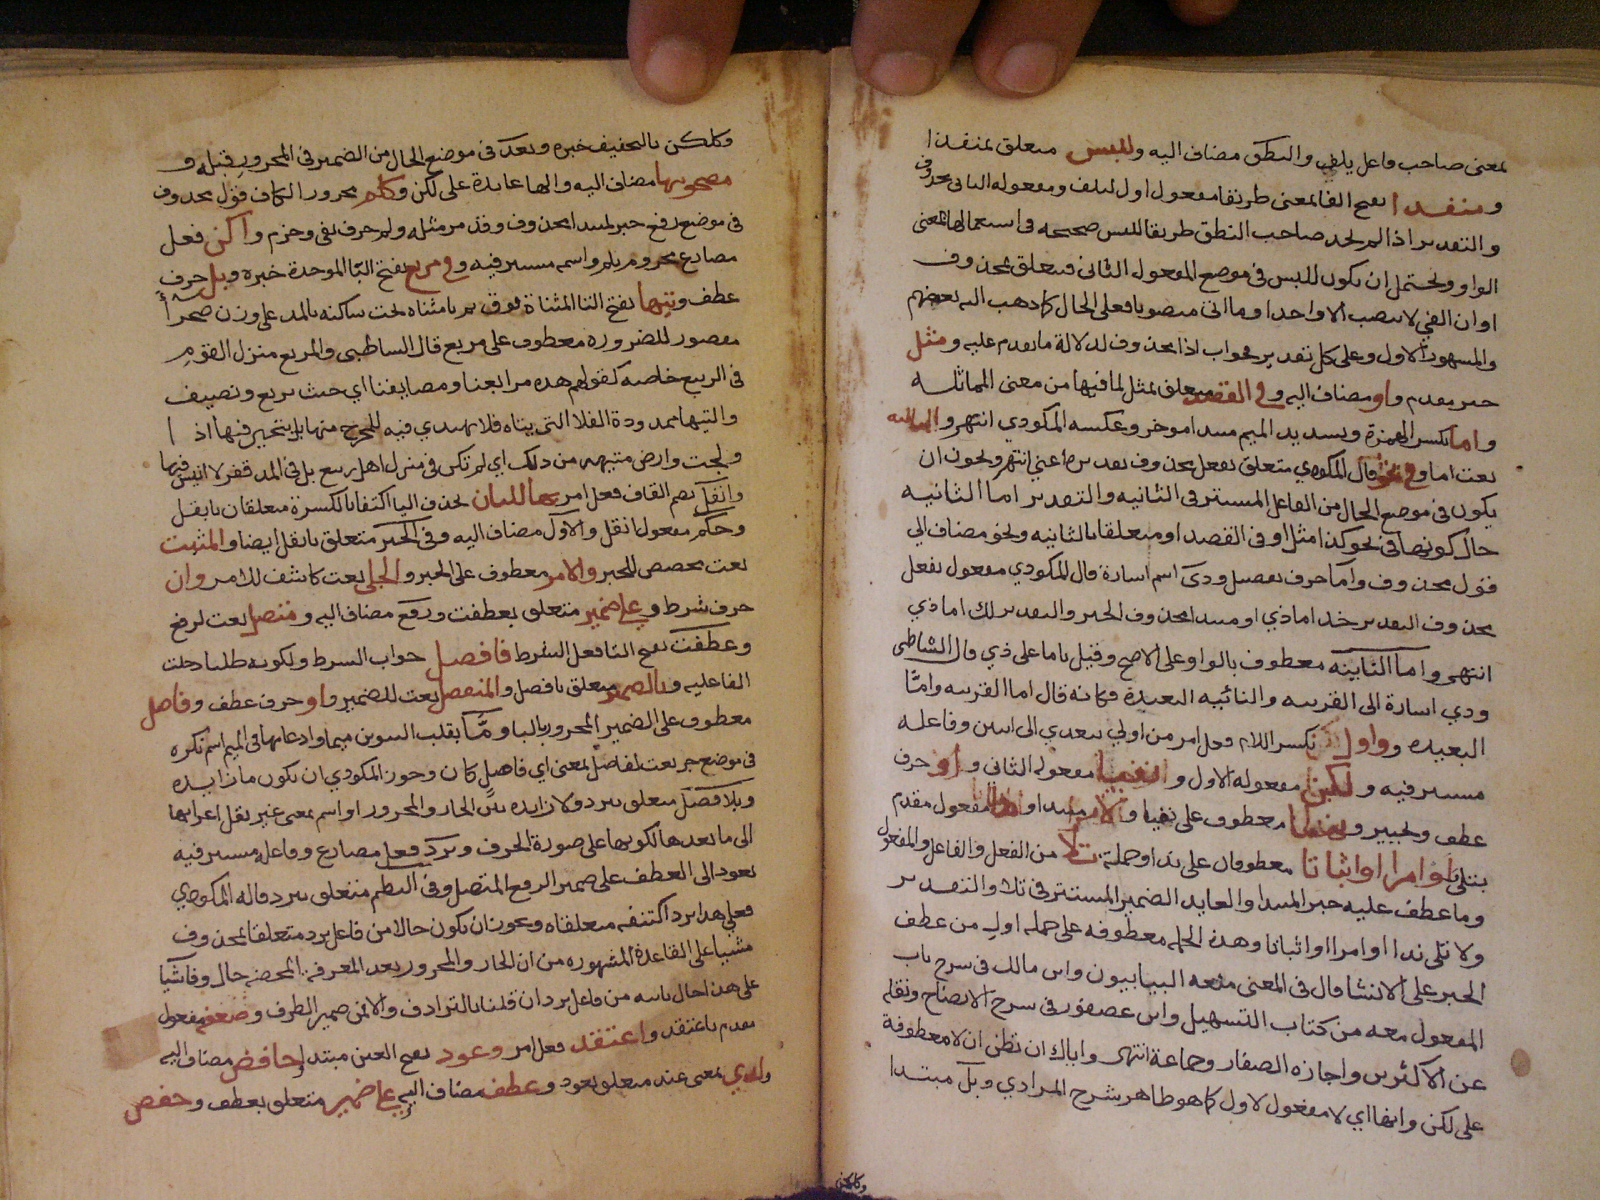 بمعنى صاحب فاعل يلف والنطق مضاف اليه وللبس متعلق بمنفذا
ومنفذا بفتح الفا بمعنى طريقا مفعول اول ليلف ومفعوله الثانى محذوف
والتقدير اذا لم يجد صاحب النطق طريقا للبس صحيحه فى استعمالها بمعنى
الواو ويحتمل ان يكون للبس فى موضع المفعول الثانى فيتعلق بمحذوف
او ان الفي لا ينصب الا واحدا وما اتى منصوبا فعلى الحال كما ذهب اليه بعضهم
والمشهور الاول وعلى كل تقدير فجواب اذا محذوف لدلالة ما تقدم عليه ومثل
خبر مقدم واو مضاف اليه وفى القصد متعلق بمثل لما فيها من معنى المماثله
واما بكسر الهمزة وتشديد الميم مبتدا موخر وعكسه المكودي انتهى والثانيه
نعت اما وفى نحو قال المكودي متعلق بفعل محذوف تقديره اعني انتهى ويجوز ان
يكون فى موضع الحال من الفاعل المستتر فى الثانيه والتقدير اما الثانيه
حال كونها فى نحو كذا مثل او فى القصد او متعلقا بالثانيه ونحو مضاف الى
قول محذوف واما حرف تفصيل وذى اسم اشارة قال المكودي مفعول بفعل
محذوف التقدير خذ اما ذي او مبتدا محذوف الخبر والتقدير لك اما ذي
انتهى واما النائيه معطوف بالواو على الاصح وقيل باما على ذي قال الشاطبى
وذي اشارة الى القريبه والنائيه البعيدة فكانه قال اما القريبه وامّا
البعيده وواول بكسر اللام فعل امر من اولى يتعدي الى اثنين وفاعله
مستتر فيه ولكن مفعوله الاول ونفيا مفعوله الثانى واو حرف
عطف وتخيير ونهيا معطوف على نفيا ولا مبتدا وندا مفعول مقدم
بتلا او امرا او اثباتا معطوفان على ندا وجملة تلا من الفعل والفاعل والمفعول
وما عطف عليه خبر المبتدا والعايد الضمير المستتر فى تلا والتقدير
ولا تلى ندا او امرا او اثباتا وهذه الجمله معطوفه على جملة اول من عطف
الخبر على الانشا قال فى المعنى منعه البيانيون وابن مالك فى شرح باب
المفعول معه من كتاب التسهيل وابن عصفور فى شرح الايضاح ونقله
عن الاكثرين واجازه الصفار وجماعة انتهى واياك ان تظن ان لا معطوفة
على لكن وانها اي لا مفعول لاول كما هو ظاهر شرح المرادي وبل مبتدا
وكلكن
وكلكن بالتخفيف خبره وبعد فى موضع الحال من الضمير فى المجرور قبله و
مصحوبيها مضاف اليه والها عايدة على لكن وكلم مجرور الكاف قول محذوف
فى موضع رفع خبر لمبتدا محذوف وقد مر مثله ولم حرف نفى وجزم واكن فعل
مضارع مجزوم بلم واسمه مستتر فيه وفى مربع بفتح البا الموحدة خبره وبل حرف
عطف وتيها بفتح التا المثناة فوق ثم يا مثناه تحت ساكنه بالمد على وزن صحرآ
مقصور للضرورة معطوف على مربع قال الشاطبى والمربع منزل القوم
فى الربيع خاصه كقولهم هذه مرابعنا ومصايفنا اي حيث نربع ونصيف
والتيها ممدودة الفلاة التى يتاه فلا يهتدي فيه للخروج منها بل يتحير فيها اذ ا
ولجت وارض متيهه من ذلك اي لم تكن فى منزل اهل ربيع بل فى المد قفر لا انيس فيها
وانقل بضم القاف فعل امر بها للثان بحذف اليا اكتفا بالكسرة متعلقان بانقل
وحكم مفعول بانقل والاول مضاف اليه وفى الخبر متعلق بانقل ايضا والمثبت
نعت مخصص للخبر والامر معطوف على الخبر والجلى نعت كاشف للامر وان
حرف شرط وعلى ضمير متعلق بعطفت ورفع مضاف اليه ومتصل نعت لرفع
وعطفت بفتح التا فعل الشرط فافصل جواب الشرط ولكونه طلبا دخلت
الفا عليه وبالضمير متعلق بافصل والمنفصل نعت للضمير واو حرف عطف وفاصل
معطوف على الضمير المجرور بالبا وما بقلب التنوين ميما وادغامها فى الميم اسم نكره
فى موضع جر نعت لفاصل بمعنى اي فاصل كان وجوز المكودي ان تكون ما زايده
وبلا فصل متعلق بيرد ولا زايده بين الجار والمجرور او اسم بمعنى غير نقل اعرابها
الى ما بعدها لكونها على صورة الحرف ويرد فعل مضارع وفاعله مستتر فيه
يعود الى العطف على ضمير الرفع المتصل وفى النظم متعلق بيرد قاله المكودي
فعلى هذا يرد اكتنفه متعلقاه ويجوز ان يكون حالا من فاعل يرد متعلقا بمحذوف
مشيا على القاعدة المشهوره من ان الجار والمجرور بعد المعرفه المحضه حال وفاشيا
على هذا حال ثانيه من فاعل يرد ان قلنا بالترادف والا فمن ضمير الظرف وضعفه مفعول
مقدم باعتقد واعتقد فعل امر وعود بفتح العين مبتدا وخافض مضاف اليه
ولدي بمعنى عند متعلق بعود وعطف مضاف اليه على ضمير متعلق بعطف وخفض